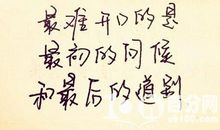 最难开口的是
最初的问候
和最后的道别
百分网